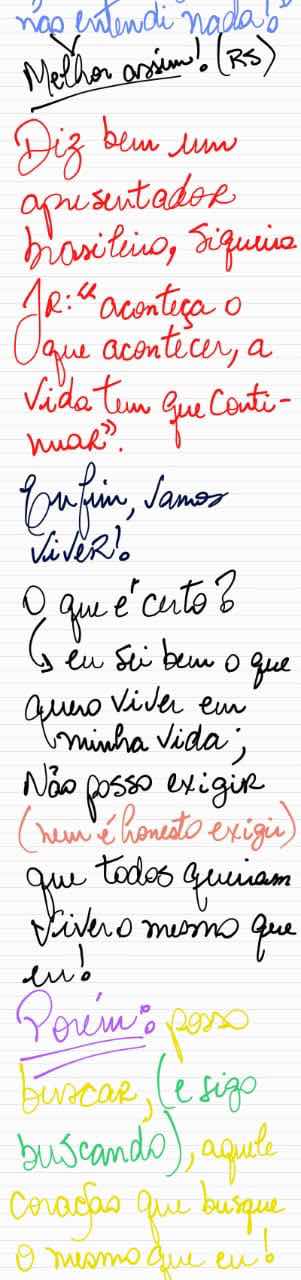 não entendi nada!"
Melhor assim! (RS)
Diz bem um
apresentador
brasileiro, Siqueira
JR: "aconteça o
que acontecer, a
vida tem que conti-
nuar".
Enfim, vamos
viver!
O que é certo?
eu sei bem o que
quero viver em
minha vida;
Não posso exigir
(nem é honesto exigir)
que todos queiram
viver o mesmo que
eu!
Porém: posso
buscar, (e sigo
buscando), aquele
coração que busque
o mesmo que eu!